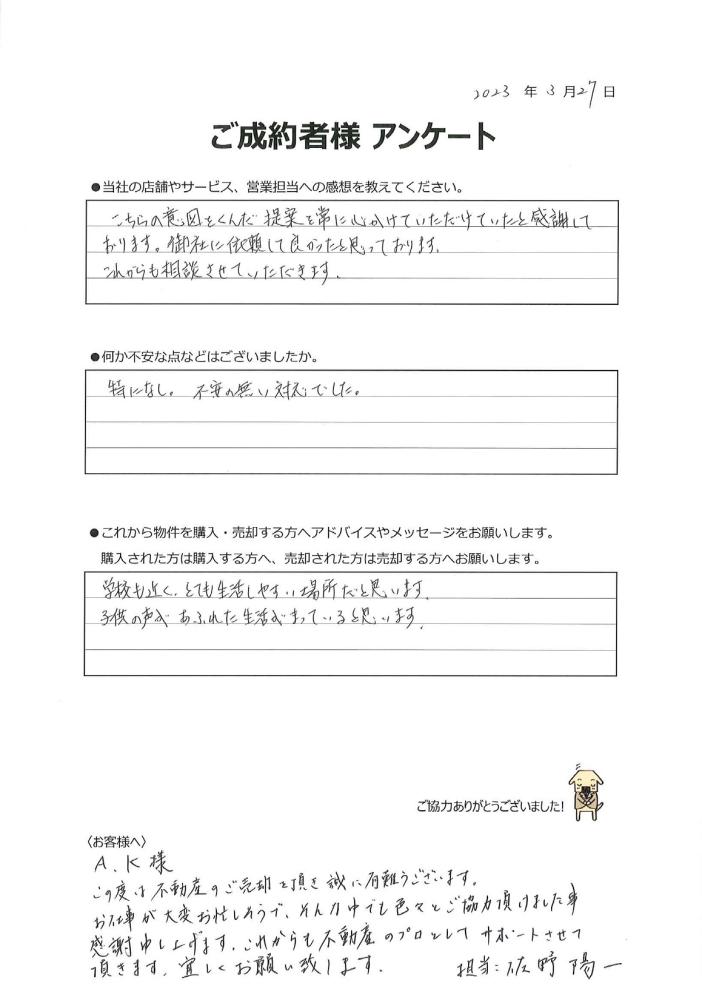 2023 年 3 月 27 日
ご成約者様 アンケート
●当社の店舗やサービス、営業担当への感想を教えてください。
こちらの意図をくんだ提案を常に心がけていただけていたと感謝して
おります。御社に依頼して良かったと思っております。
これからも相談させていただきます。
●何か不安な点などはございましたか。
特になし。 不安の無い対応でした。
●これから物件を購入・売却する方へアドバイスやメッセージをお願いします。
購入された方は購入する方へ、売却された方は売却する方へお願いします。
学校も近く、とても生活しやすい場所だと思います。
子供の声があふれた生活がまっていると思います。
ご協力ありがとうございました!
〈お客様へ〉
A.K様
この度は不動産のご売却を頂き誠に有難うございます。
お仕事が大変お忙しそうで、そんな中でも色々とご協力頂けました事
感謝申し上げます。これからも不動産のプロとしてサポートさせて
頂きます。宜しくお願い致します。 担当:佐野 陽一